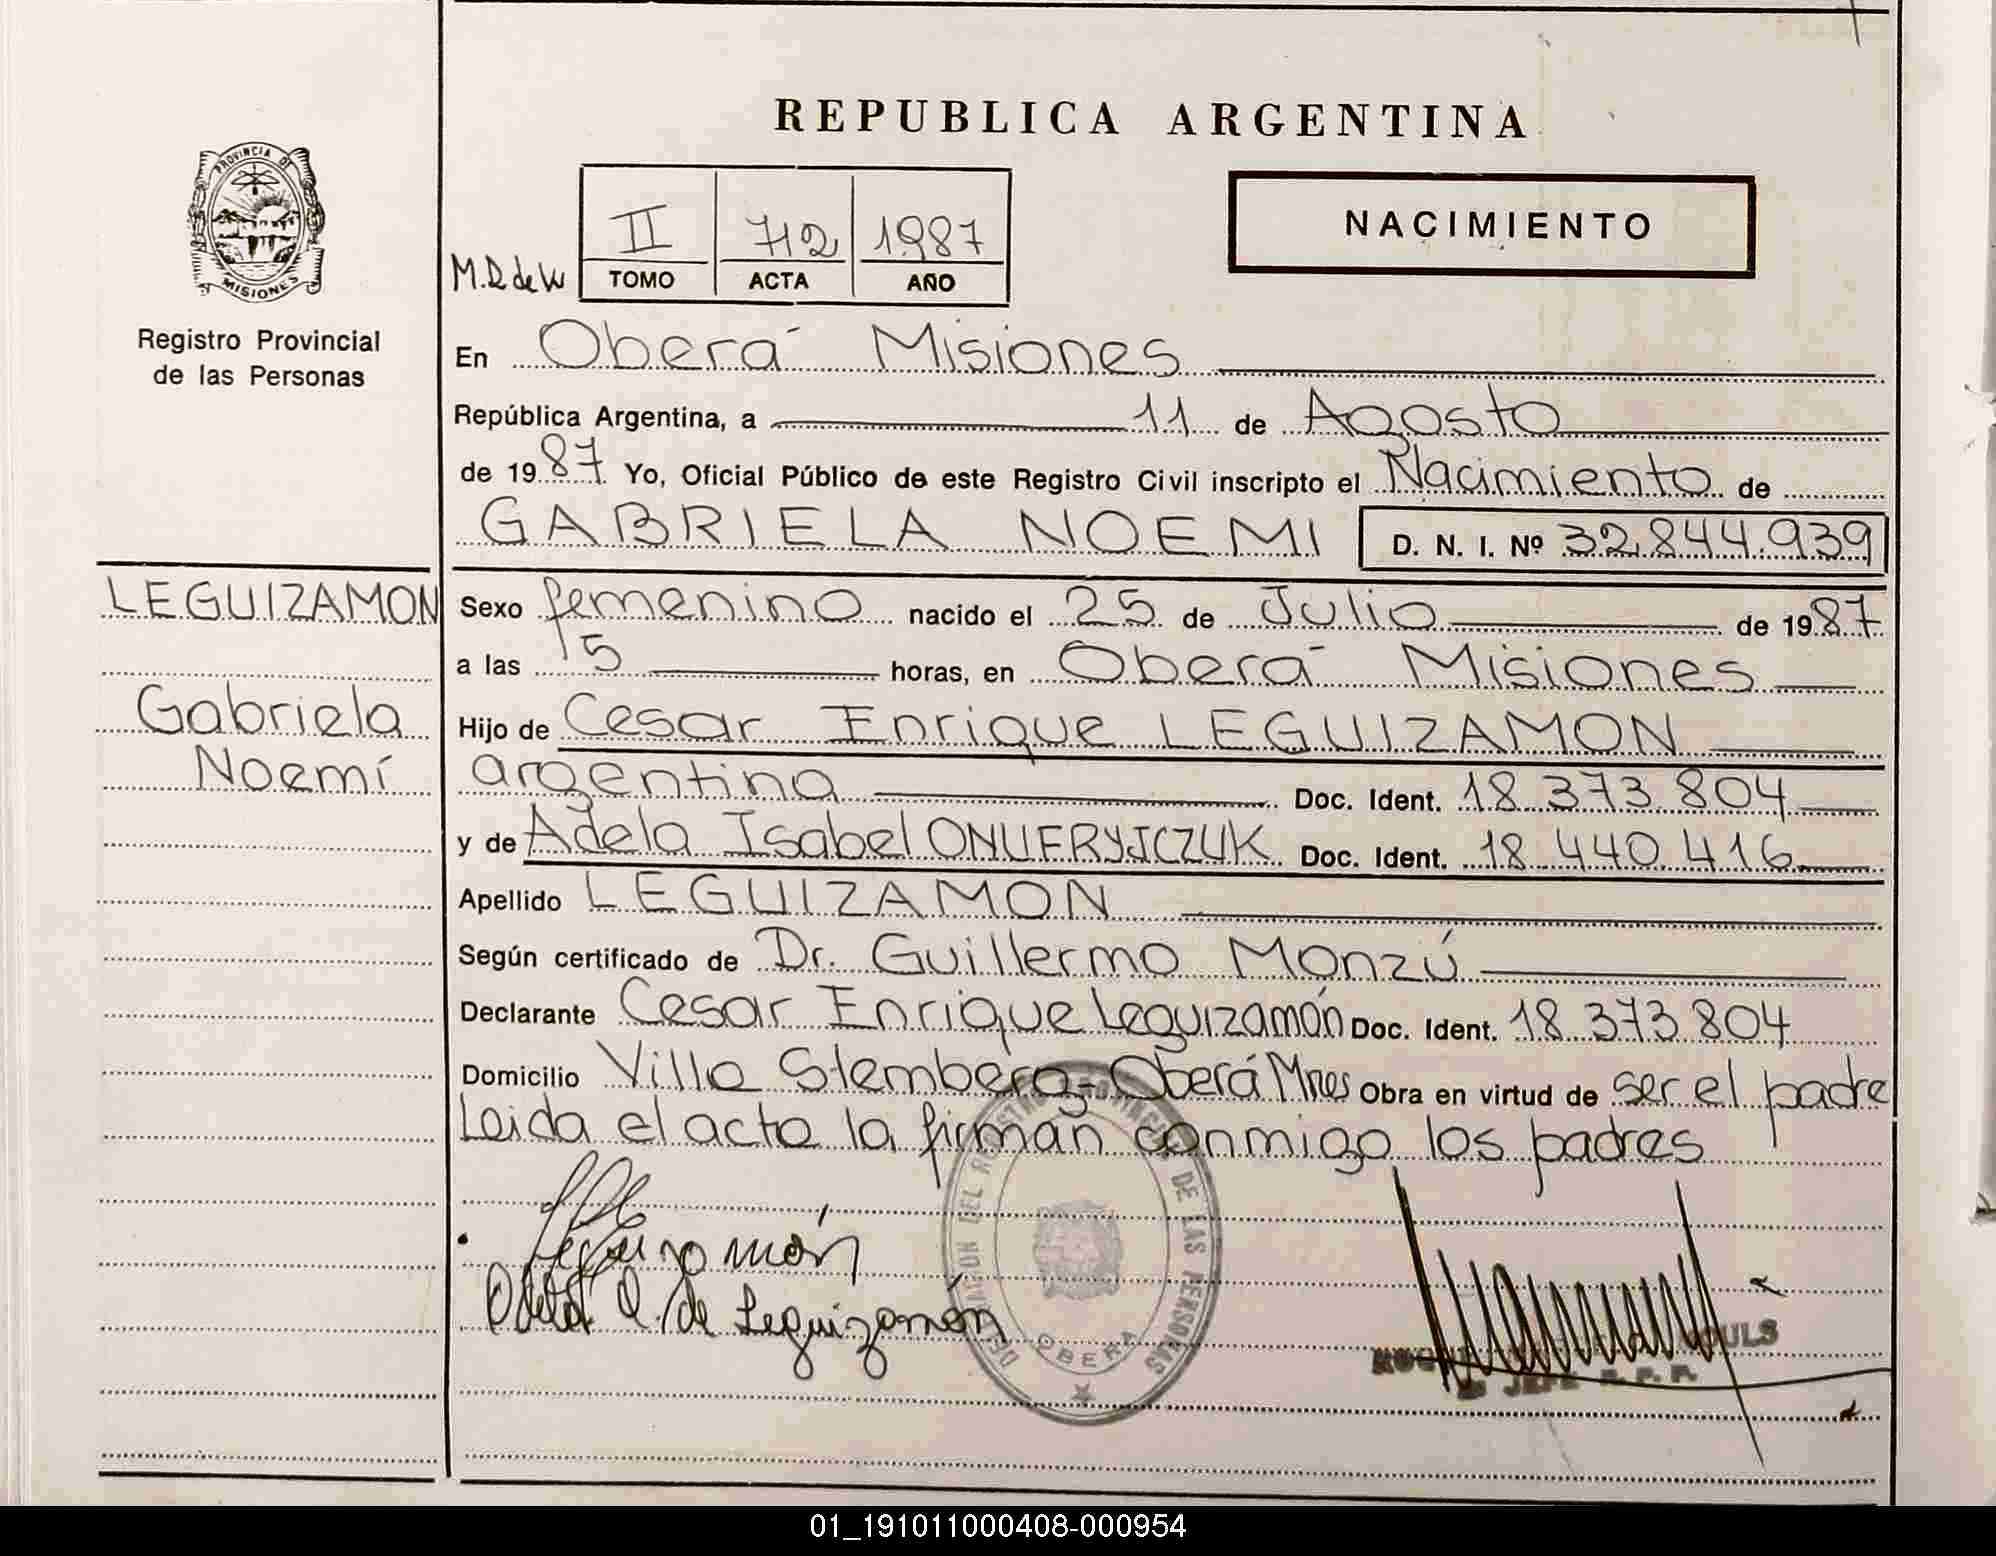 REPUBLICA ARGENTINA
PROVINCIA DE
MISIONES
Registro Provincial
de las Personas
II 712 1987
M.D. de W TOMO ACTA AÑO
NACIMIENTO
En Oberá Misiones
República Argentina, a 11 de Agosto
de 1987 Yo, Oficial Público de este Registro Civil inscripto el Nacimiento de
GABRIELA NOEMI D. N. I. Nº 32.844.939
LEGUIZAMON
Gabriela
Noemí
Sexo femenino nacido el 25 de Julio de 1987
a las 15 horas, en Oberá Misiones
Hijo de Cesar Enrique LEGUIZAMON
argentina Doc. Ident. 18 373 804
y de Adela Isabel ONUFRYJCZUK Doc. Ident. 18 440 416
Apellido LEGUIZAMON
Según certificado de Dr. Guillermo Monzú
Declarante Cesar Enrique Leguizamón Doc. Ident. 18 373 804
Domicilio Villa Stemberg - Oberá Mnes Obra en virtud de ser el padre
Leida el acta la firman conmigo los padres
DEL REGISTRO PROVINCIAL DE LAS PERSONAS
OBERA
Leguizamón
de Leguizamón
JEFE R. P. P.
01_191011000408-000954